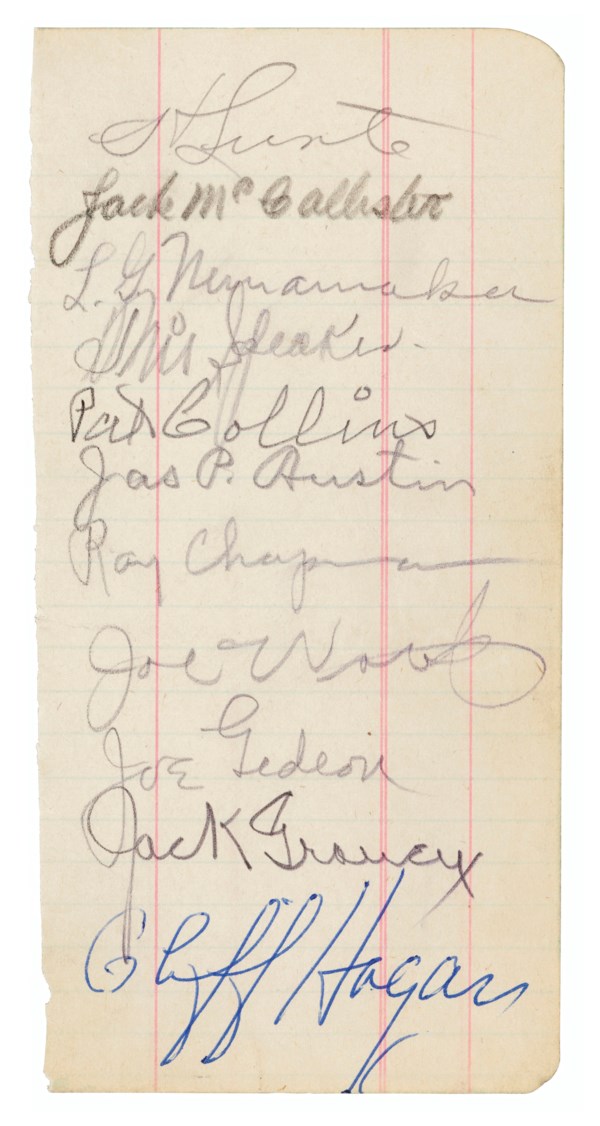 Jack McCallister
L. G. Nunamaker
Tris Speaker.
Pat Collins
Jas P. Austin
Ray Chapman
Joe Wood
Joe Gedeon
Jack Graney
Cliff Hagan